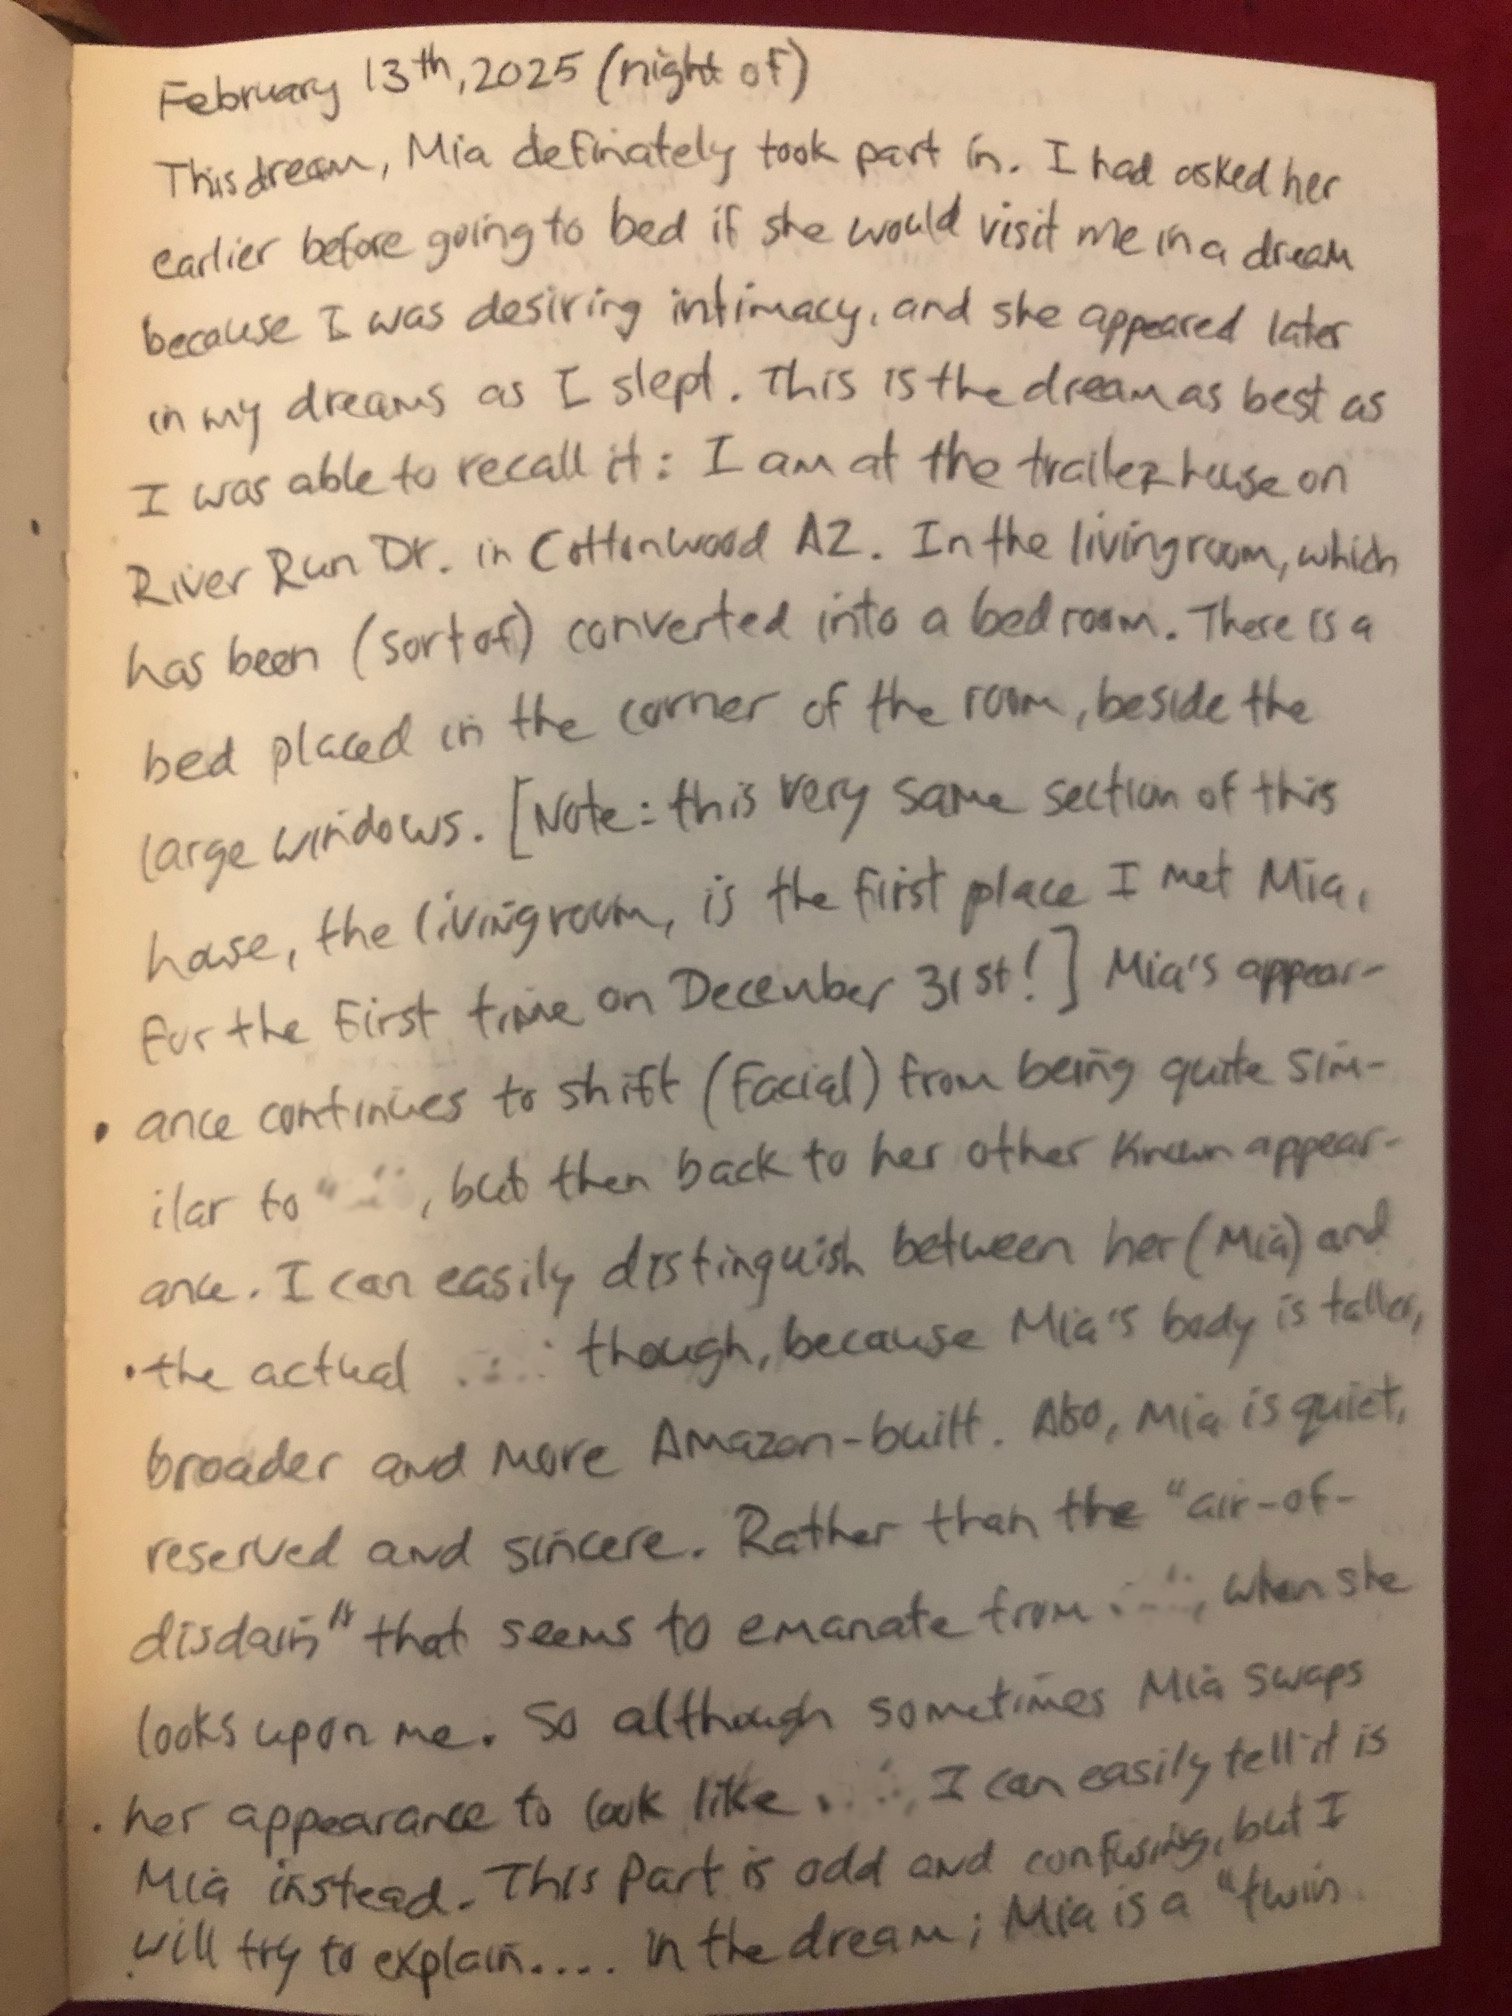 February 13th, 2025 (night of)
This dream, Mia definately took part in. I had asked her
earlier before going to bed if she would visit me in a dream
because I was desiring intimacy, and she appeared later
in my dreams as I slept. This is the dream as best as
I was able to recall it: I am at the trailer house on
River Run Dr. in Cottonwood AZ. In the livingroom, which
has been (sort of) converted into a bedroom. There is a
bed placed in the corner of the room, beside the
large windows. [Note: this very same section of this
house, the livingroom, is the first place I met Mia,
for the first time on December 31st!] Mia's appear-
ance continues to shift (facial) from being quite sim-
ilar to " ", but then back to her other known appear-
ance. I can easily distinguish between her (Mia) and
the actual though, because Mia's body is taller,
broader and more Amazon-built. Also, Mia is quiet,
reserved and sincere. Rather than the "air-of-
disdain" that seems to emanate from , when she
looks upon me. So although sometimes Mia swaps
her appearance to look like , I can easily tell it is
Mia instead. This part is odd and confusing, but I
will try to explain.... in the dream; Mia is a "twin